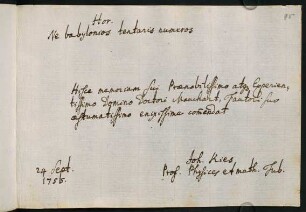 Hor.
Ne babylonios tentaris numeros
Hisce memoriam sui Prænobilissimo atq; Experien,
tissimo Domino Doctori Mauchart, Fautori suo
æstumatissimo enixissime comendat
24 Sept.
1756.
Joh. Kies,
Prof. Physices et math. Tub.